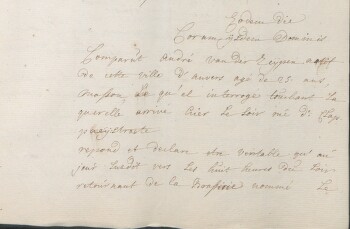 Eodem die
Coram Iisdem Dominis
Comparut André van der Eeypen natif
de cette ville d'anvers agé de 25 ans,
masson, qu'el interrogé touchant la
querelle arrivé hier le soir
repond et declare etre veritable qu'au
jour susdit vers les huit heures du soir
retournant de la nommé le